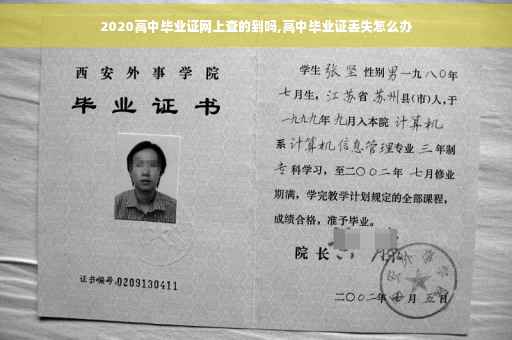 2020高中毕业证网上查的到吗,高中毕业证丢失怎么办
西安外事学院
毕业证书
证书编号:0209130411
学生张坚性别男一九八〇年
七月生,江苏省苏州县(市)人,于
一九九九年九月入本院计算机
系计算机信息管理专业三年制
专科学习,至二〇〇二年七月修业
期满,学完教学计划规定的全部课程,
成绩合格,准予毕业。
院长
外事学院
二〇〇二年 月五日